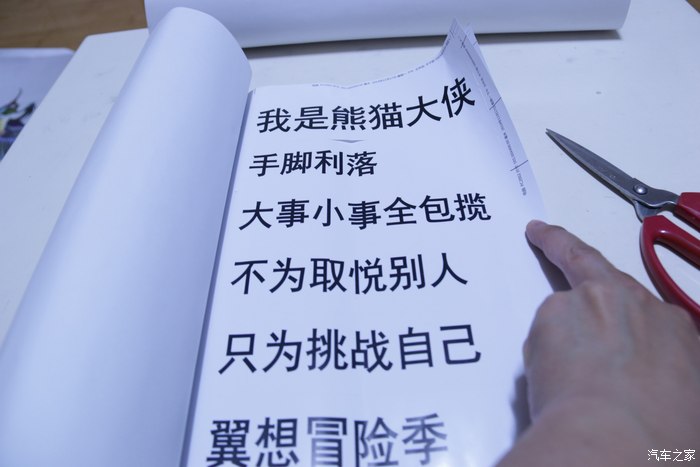 我是熊猫大侠
手脚利落
大事小事全包揽
不为取悦别人
只为挑战自己
翼想冒险季
汽车之家